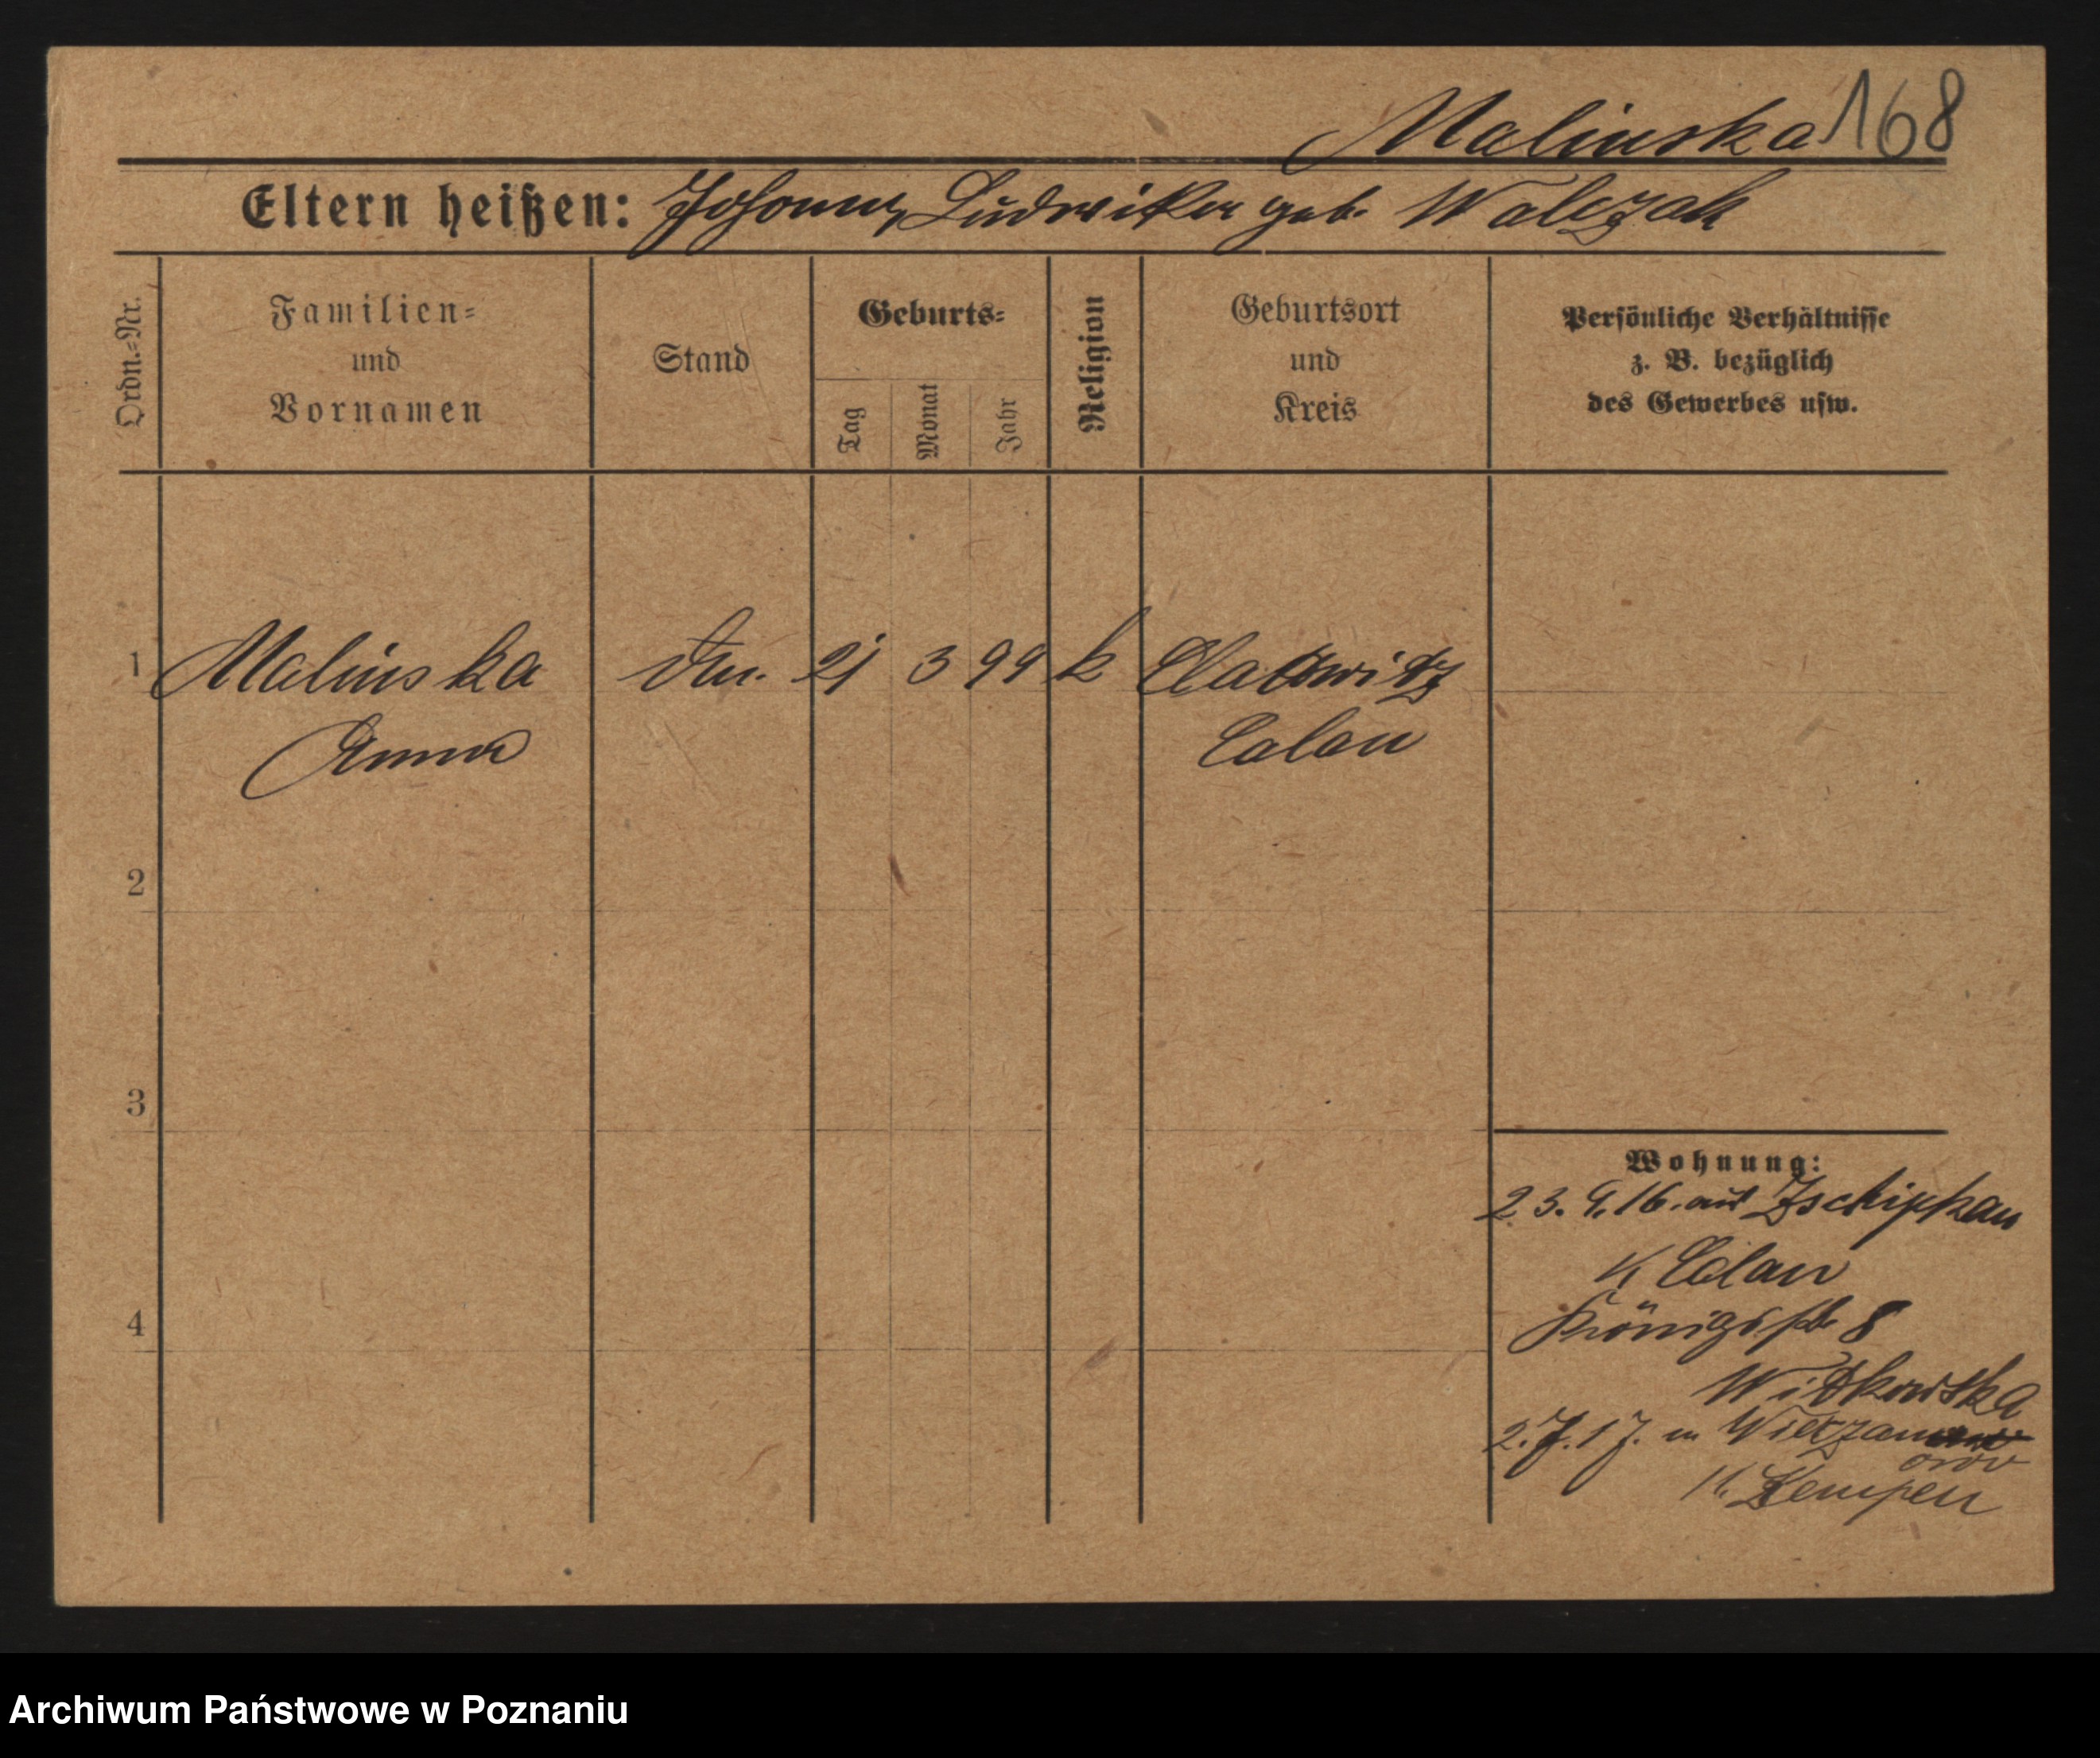 Malinska 168
Eltern heißen: Johann, Ludwika geb. Walczak
Ordn.-Nr.
Familien-
und
Vornamen
Stand
Geburts-
Tag
Monat
Jahr
Religion
Geburtsort
und
Kreis
Persönliche Verhältnisse
z. B. bezüglich
des Gewerbes usw.
1 Malinska 21 3 99 k
Anna Calau
2
3
4
Wohnung:
23. 9. 16. aus Zschipkau
K Calau
Königsstr 8
Witkowska
2. 7. 17. n
orow
K. Kempen
Archiwum Państwowe w Poznaniu